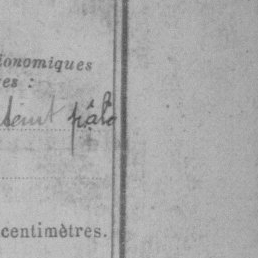 ionomiques
es :
teint pâle
centimètres.